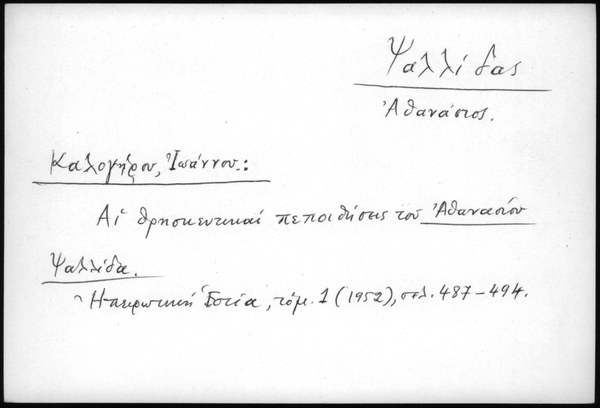 Ψαλλίδας
Ἀθανάσιος.
Καλογήρου, Ἰωάννου.:
Αἱ θρησκευτικαὶ πεποιθήσεις τοῦ Ἀθανασίου
Ψαλλίδα.
Ἠπειρωτικὴ Ἑστία, τόμ. 1 (1952), σελ. 487-494.